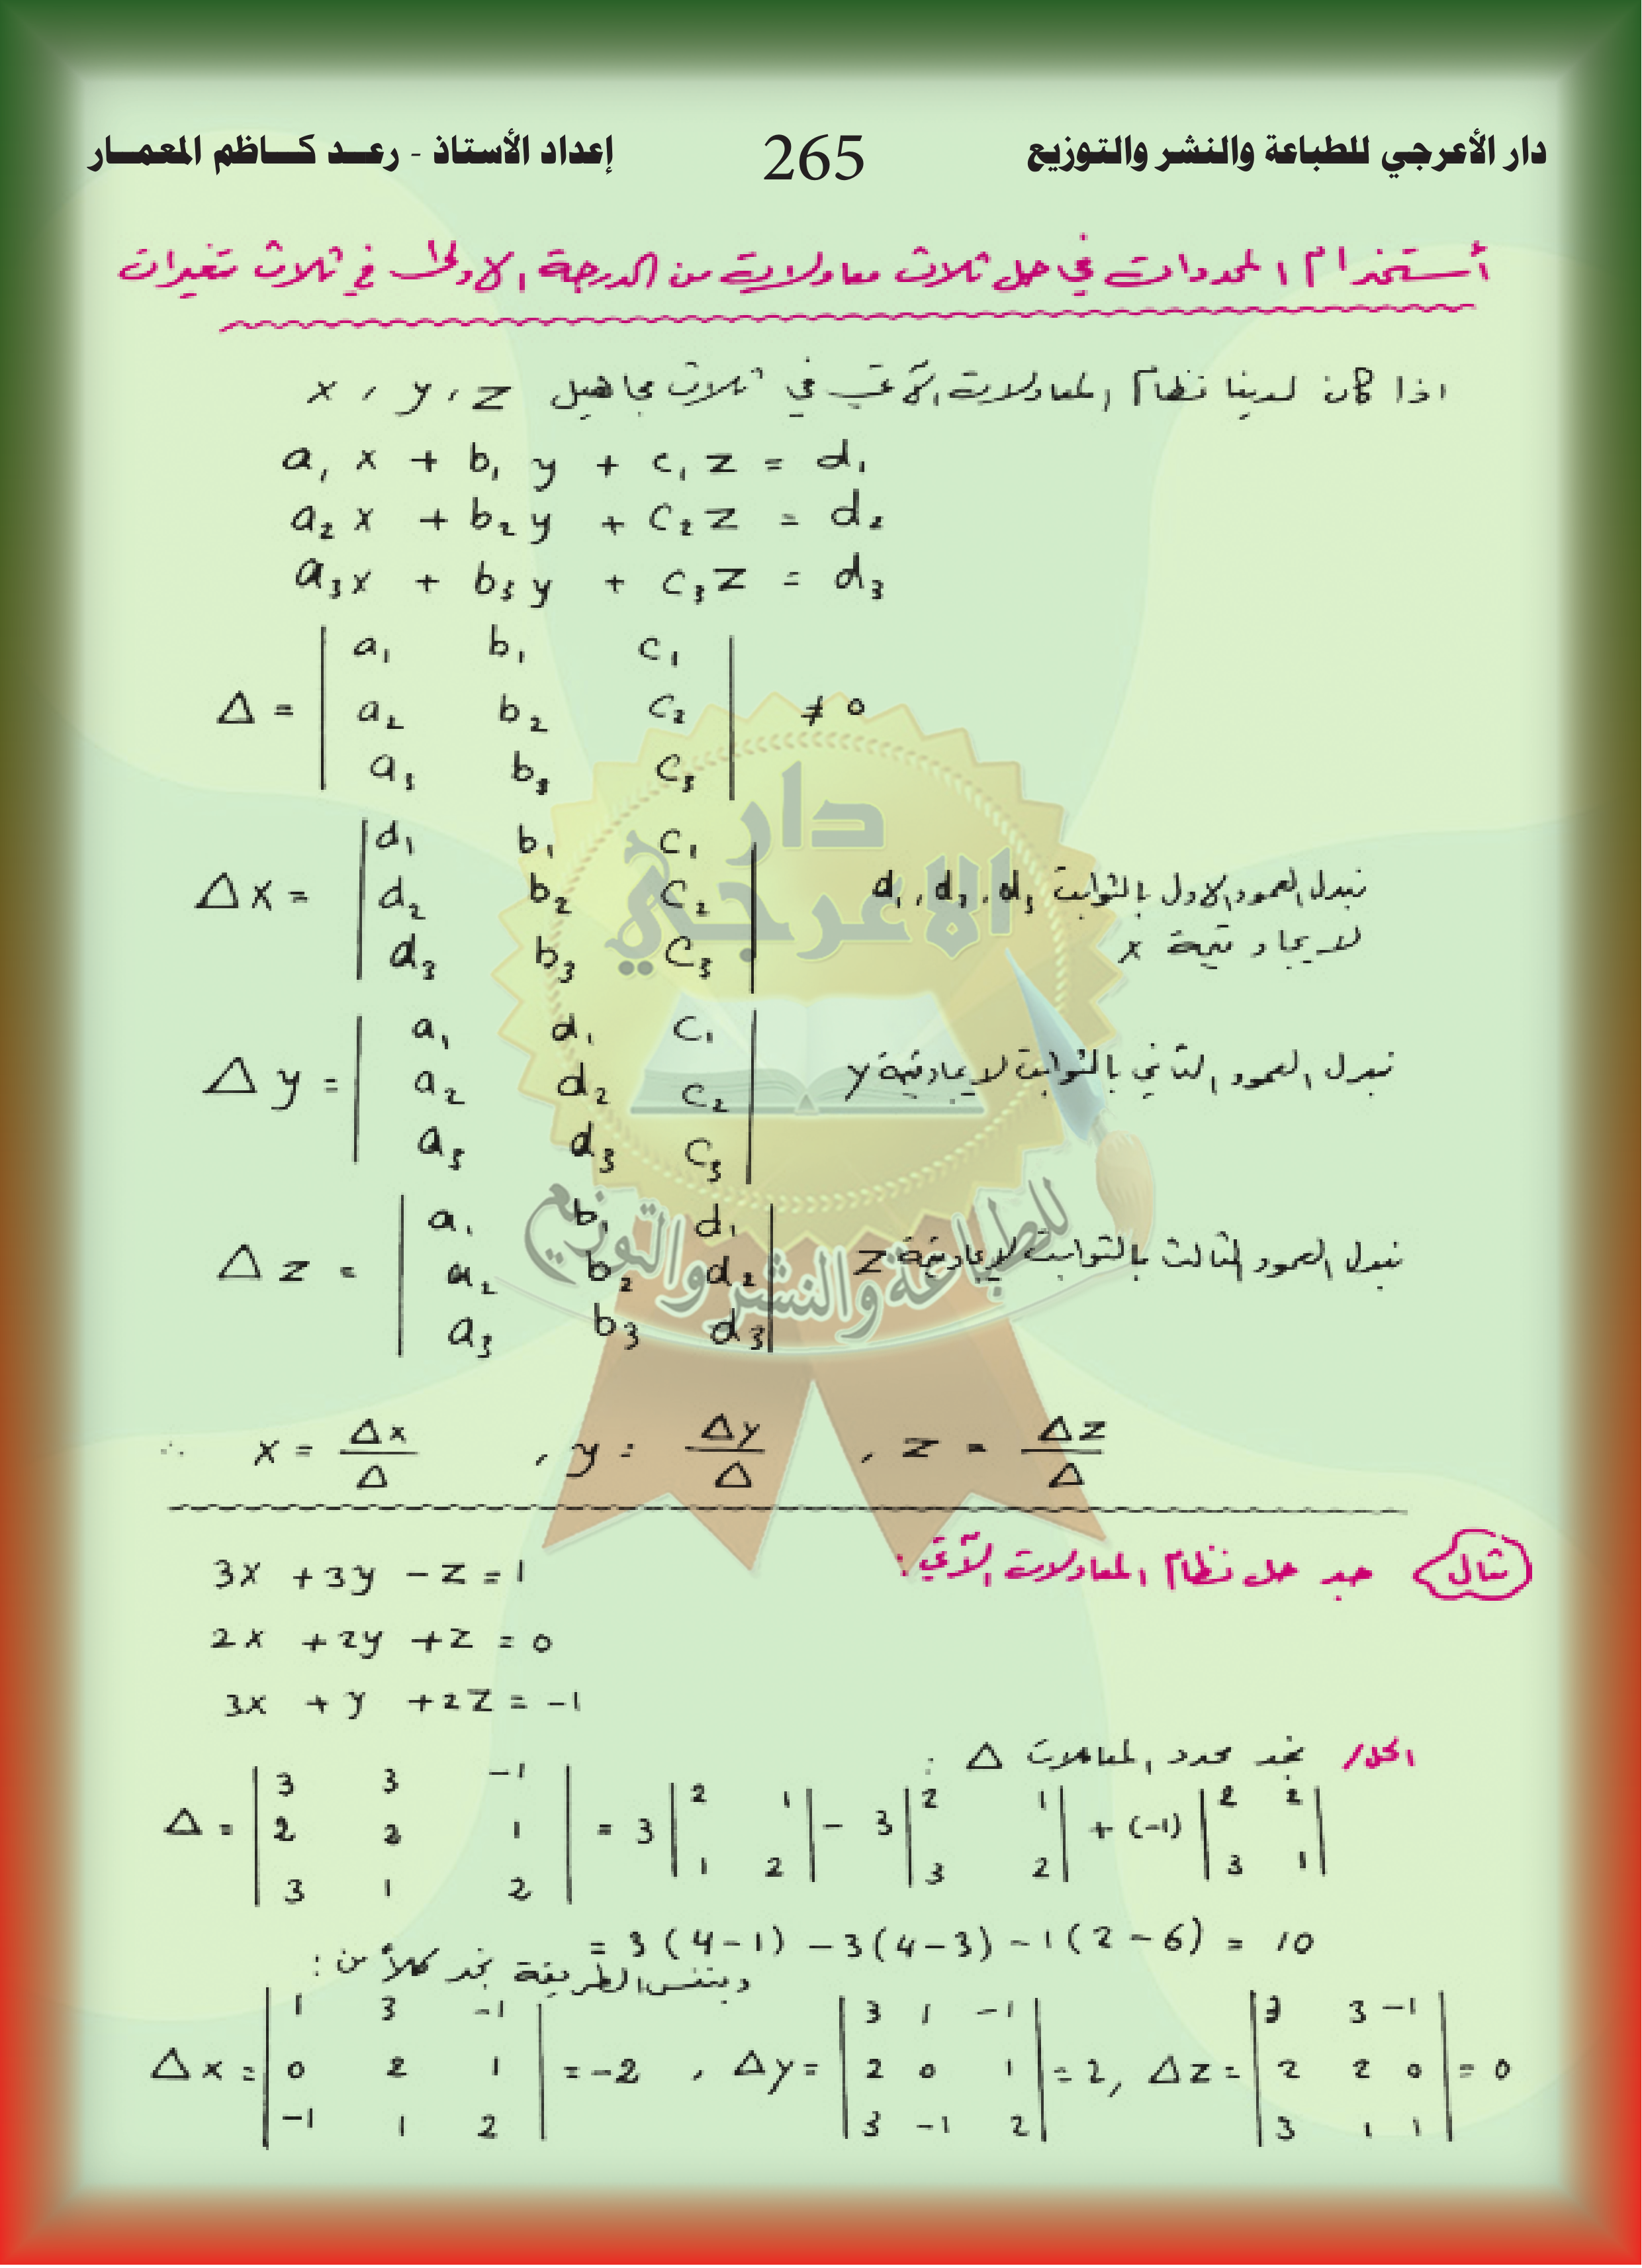 دار الأعرجي للطباعة والنشر والتوزيع 265 إعداد الأستاذ - رعد كاظم المعمار
أستخدام المحددات في حل ثلاث معاولات من الدرجة الاولى في ثلاث متغيرات
اذا كان لدينا نظام المعاولات الآتي في ثلاث مجاهيل x , y , z
a₁ x + b₁ y + c₁ z = d₁
a₂ x + b₂ y + c₂ z = d₂
a₃ x + b₃ y + c₃ z = d₃
Δ = | a₁ b₁ c₁ |
| a₂ b₂ c₂ | ≠ 0
| a₃ b₃ c₃ |
Δx = | d₁ b₁ c₁ |
| d₂ b₂ c₂ | نبدل العمود الاول بالثوابت d₁ , d₂ , d₃
| d₃ b₃ c₃ | لايجاد قيمة x
Δy = | a₁ d₁ c₁ |
| a₂ d₂ c₂ | نبدل العمود الثاني بالثوابت لايجاد قيمة y
| a₃ d₃ c₃ |
Δz = | a₁ b₁ d₁ |
| a₂ b₂ d₂ | نبدل العمود الثالث بالثوابت لايجاد قيمة z
| a₃ b₃ d₃ |
∴ x = Δx/Δ , y = Δy/Δ , z = Δz/Δ
مثال جد حل نظام المعاولات الآتي :
3x + 3y - z = 1
2x + 2y + z = 0
3x + y + 2z = -1
الحل/ نجد محدد المعاملات Δ :
Δ = | 3 3 -1 | = 3 | 2 1 | - 3 | 2 1 | + (-1) | 2 2 |
| 2 2 1 |
| 3 1 2 | | 1 2 | | 3 2 | | 3 1 |
= 3 (4-1) - 3(4-3) - 1(2-6) = 10
وبنفس الطريقة نجد كلاً من :
Δx = | 1 3 -1 | Δy = | 3 1 -1 | Δz = | 3 3 -1 |
| 0 2 1 | = -2 , | 2 0 1 | = 2 , | 2 2 0 | = 0
| -1 1 2 | | 3 -1 2 | | 3 1 1 |
دار
الاعرجي
للطباعة والنشر والتوزيع